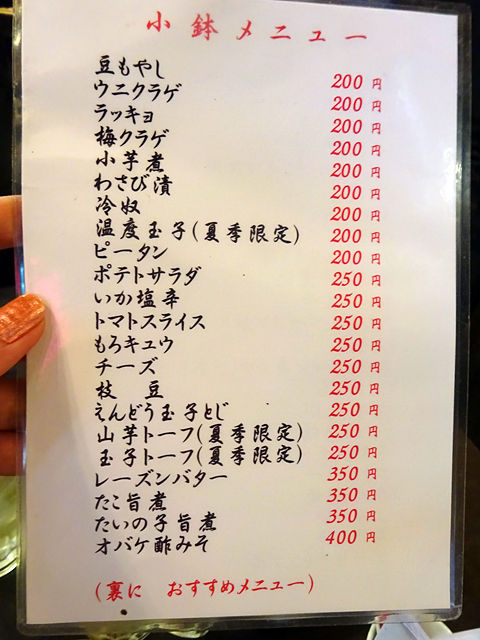 小鉢メニュー
豆もやし 200円
ウニクラゲ 200円
ラッキョ 200円
梅クラゲ 200円
小芋煮 200円
わさび漬 200円
冷奴 200円
温度玉子(夏季限定) 200円
ピータン 200円
ポテトサラダ 250円
いか塩辛 250円
トマトスライス 250円
もろキュウ 250円
チーズ 250円
枝 豆 250円
えんどう玉子とじ 250円
山芋トーフ(夏季限定) 250円
玉子トーフ(夏季限定) 250円
レーズンバター 350円
たこ旨煮 350円
たいの子旨煮 350円
オバケ酢みそ 400円
(裏に おすすめメニュー)